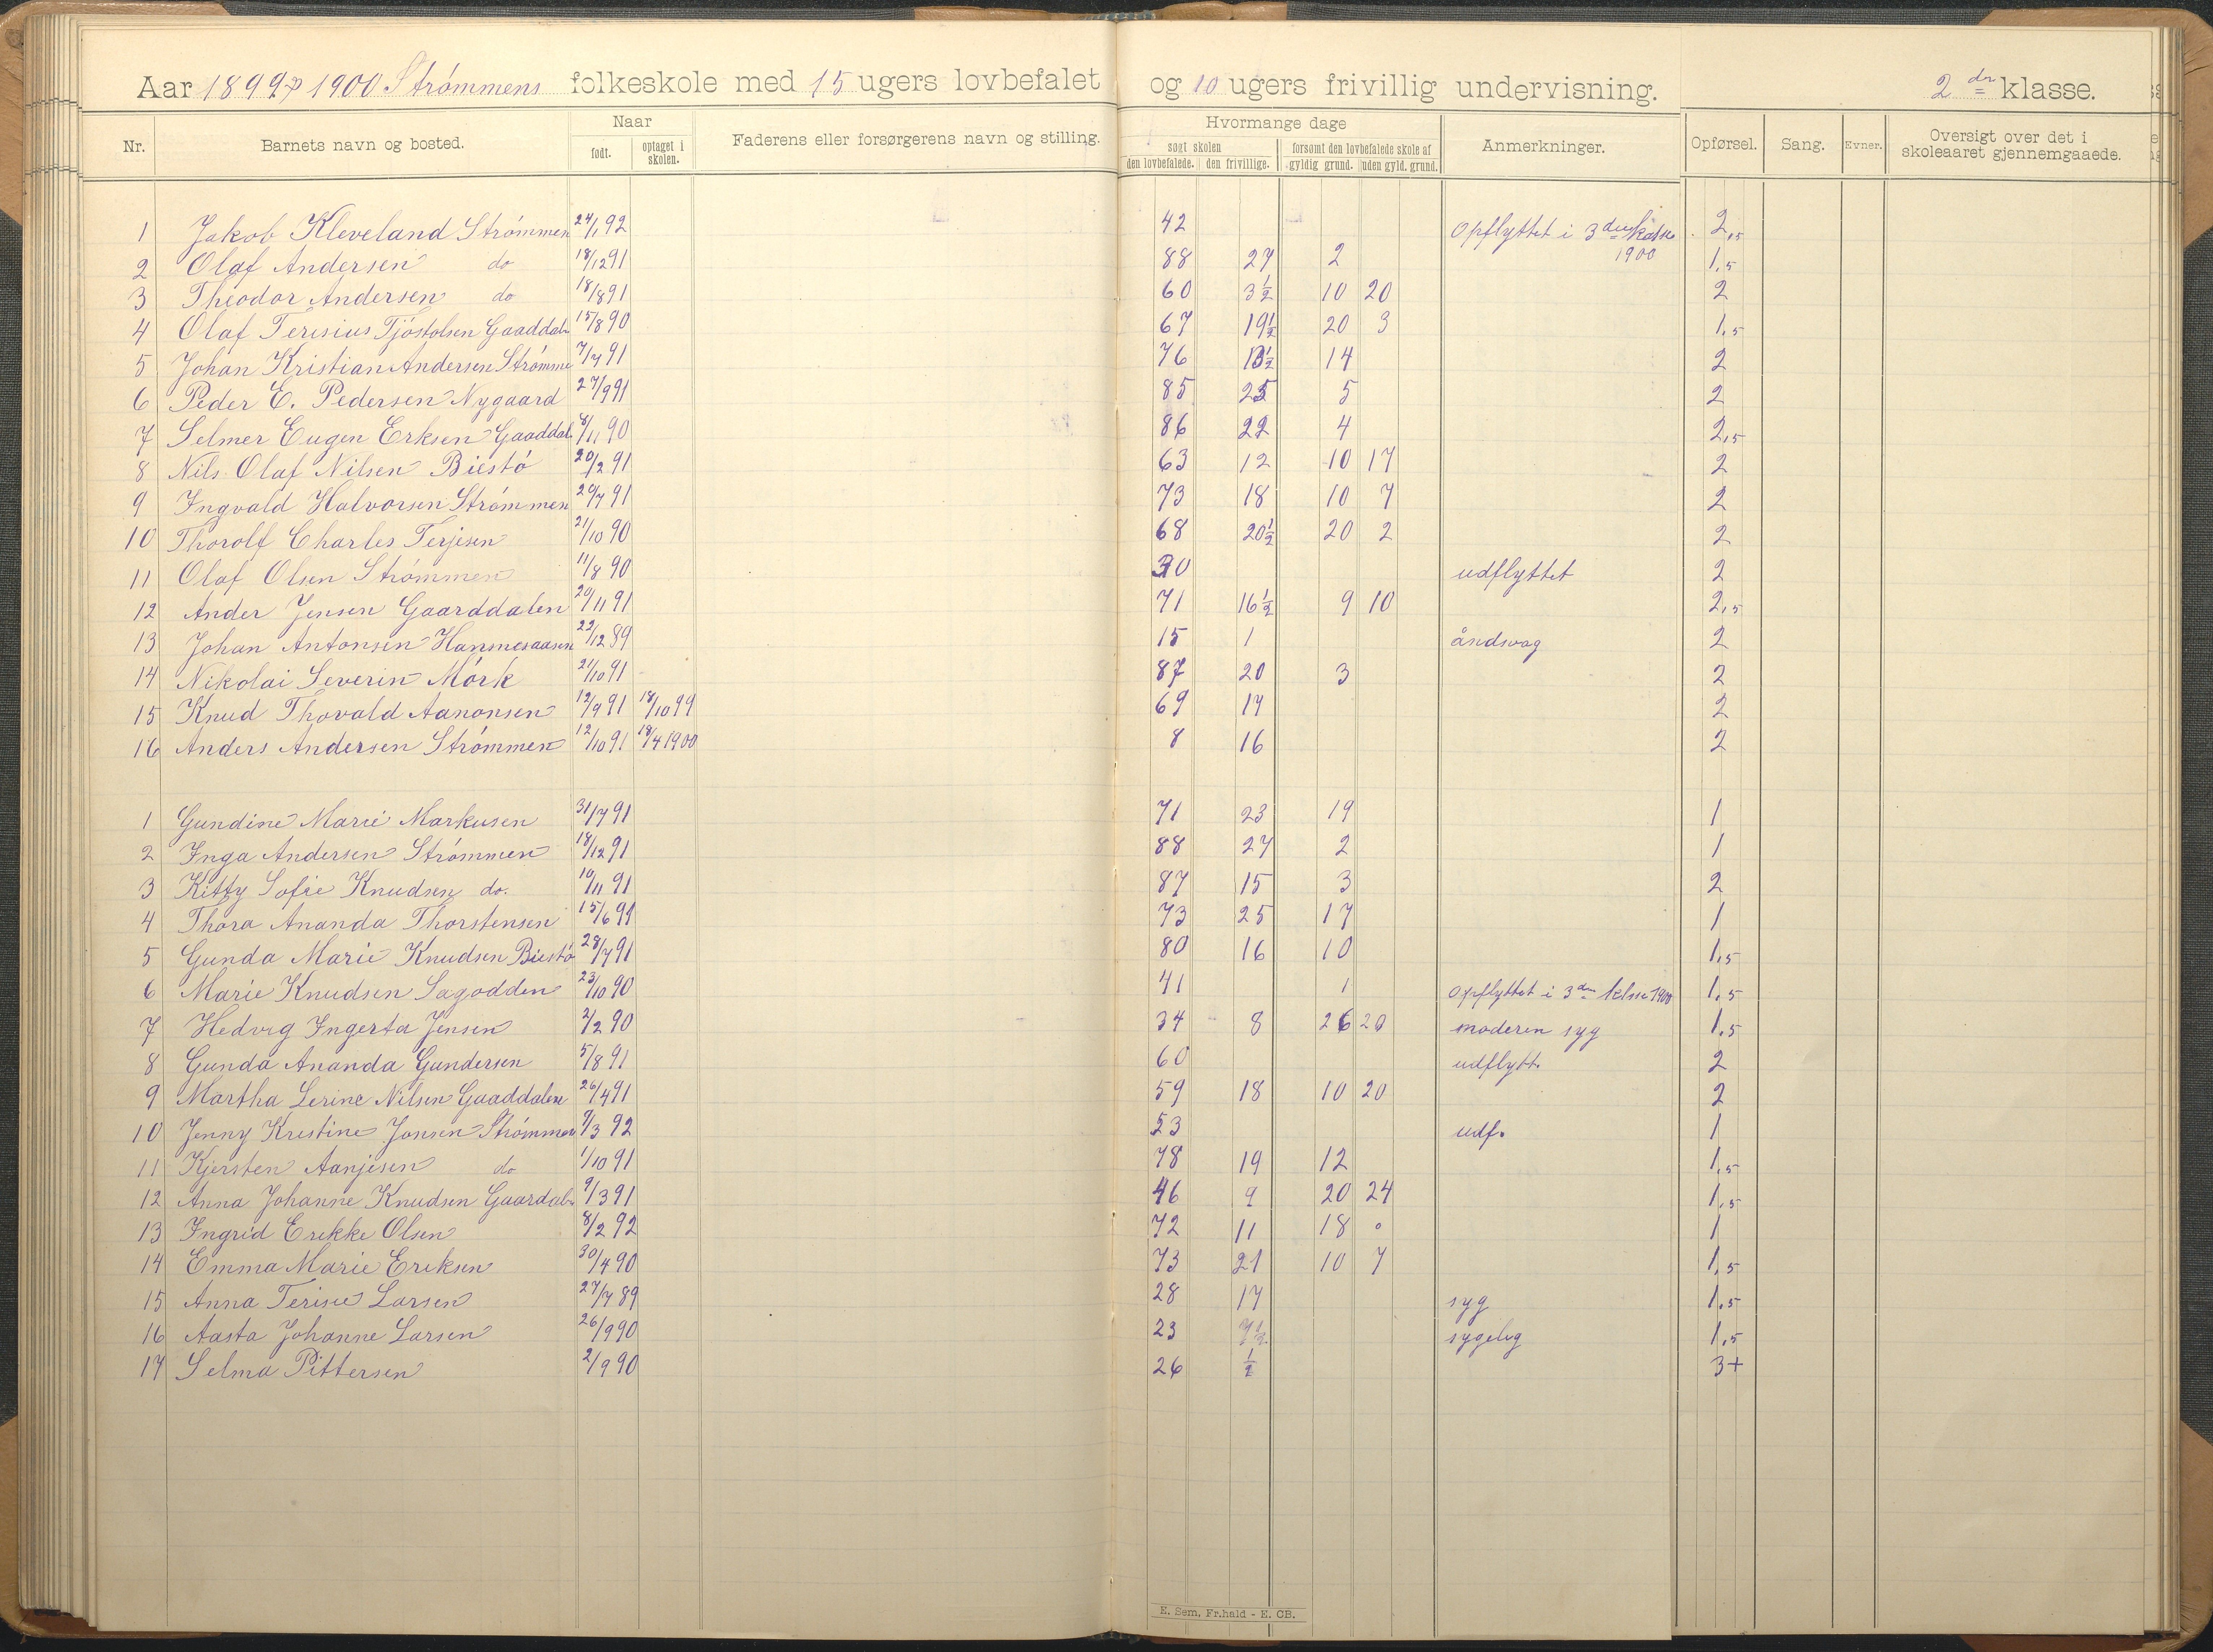 Aar 1899 1900 Strømmens folkeskole med 15 ugers lovbefalet og 10 ugers frivillig undervisning. 2dn klasse.
Nr. Barnets navn og bosted. Naar født. optaget i skolen. Faderens eller forsørgerens navn og stilling. Hvormange dage søgt skolen den lovbefalede. den frivillige. forsømt den lovbefalede skole af gyldig grund. uden gyld. grund. Anmerkninger. Opførsel. Sang. Evner. Oversigt over det i skoleaaret gjennemgaaede.
1 Jakob Kleveland Strømmen 24/1 92 42 Opflyttet i 3den klasse 1900 2,5
2 Olaf Andersen do 18/12 91 88 27 2 1,5
3 Theodor Andersen do 18/8 91 60 3½ 10 20 2
4 Olaf Terisius Tjøstolsen Gaaddal 15/8 90 67 19½ 20 3 1,5
5 Johan Kristian Andersen Strømme 7/7 91 76 13½ 14 2
6 Peder E. Pedersen Nygaard 27/9 91 85 25 5 2
7 Selmer Eugen Erksen Gaaddal 8/11 90 86 22 4 2,5
8 Nils Olaf Nilsen Biestø 20/2 91 63 12 10 17 2
9 Ingvald Halvorsen Strømmen 20/7 91 73 18 10 7 2
10 Thorolf Charles Terjesen 21/10 90 68 20½ 20 2 2
11 Olaf Olsen Strømmen 11/8 90 30 udflyttet 2
12 Ander Jensen Gaarddalen 20/11 91 71 16½ 9 10 2,5
13 Johan Antonsen Hammesaasen 22/12 89 15 1 åndsvag 2
14 Nikolai Severin Mørk 21/10 91 87 20 3 2
15 Knud Thovald Aanonsen 12/9 91 18/10 99 69 17 2
16 Anders Andersen Strømmen 12/10 91 18/4 1900 8 16 2
1 Gundine Marie Markusen 31/7 91 71 23 19 1
2 Inga Andersen Strømmen 18/12 91 88 27 2 1
3 Kitty Sofie Knudsen do. 10/11 91 87 15 3 2
4 Thora Ananda Thorstensen 15/6 91 73 25 17 1
5 Gunda Marie Knudsen Biestø 28/7 91 80 16 10 1,5
6 Marie Knudsen Sagodden 23/10 90 41 1 Opflyttet i 3den klsse 1900 1,5
7 Hedvig Ingerta Jensen 2/2 90 34 8 26 20 moderen syg 1,5
8 Gunda Ananda Gundersen 5/8 91 60 udflytt. 2
9 Martha Lerine Nilsen Gaaddalen 26/4 91 59 18 10 20 2
10 Jenny Kristine Jonsen Strømmen 9/3 92 53 udf. 1
11 Kjersten Aanjesen do 1/10 91 78 19 12 1,5
12 Anna Johanne Knudsen Gaardal 9/3 91 46 9 20 24 1,5
13 Ingrid Erikke Olsen 8/2 92 72 11 18 0 1
14 Emma Marie Eriksen 30/4 90 73 21 10 7 1,5
15 Anna Terisie Larsen 27/7 89 28 17 syg 1,5
16 Aasta Johanne Larsen 26/9 90 23 9½ sygelig 1,5
17 Selma Pittersen 2/9 90 26 ½ 3+
E. Sem, Fr.hald - E. CB.